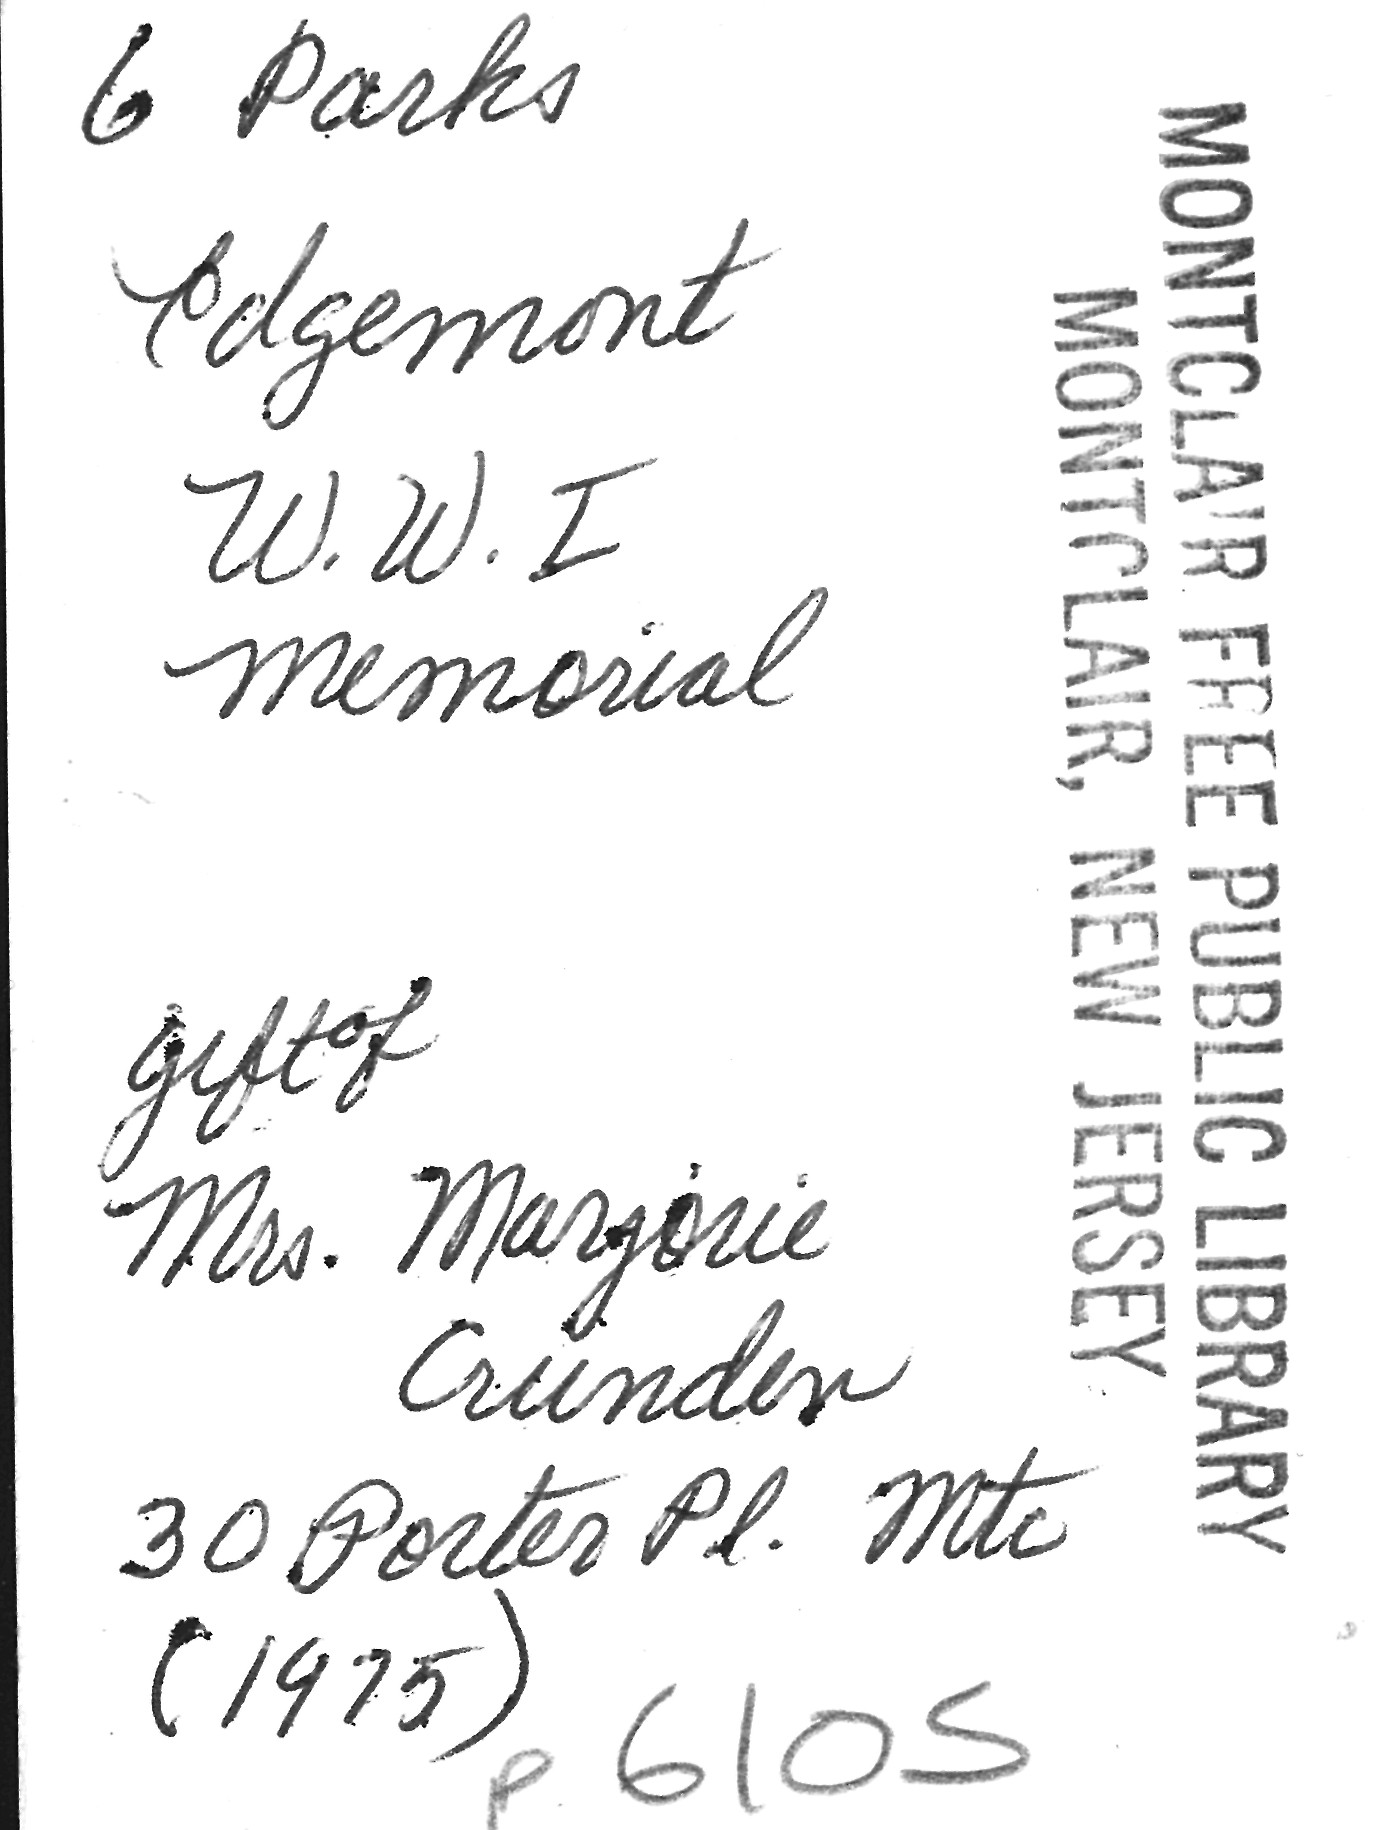 6 Parks
Edgemont
W.W. I
Memorial
gift of
Mrs. Marjorie
Crunden
30 Porter Pl. Mtc
(1975)
p 6105
MONTCLAIR FREE PUBLIC LIBRARY
MONTCLAIR, NEW JERSEY